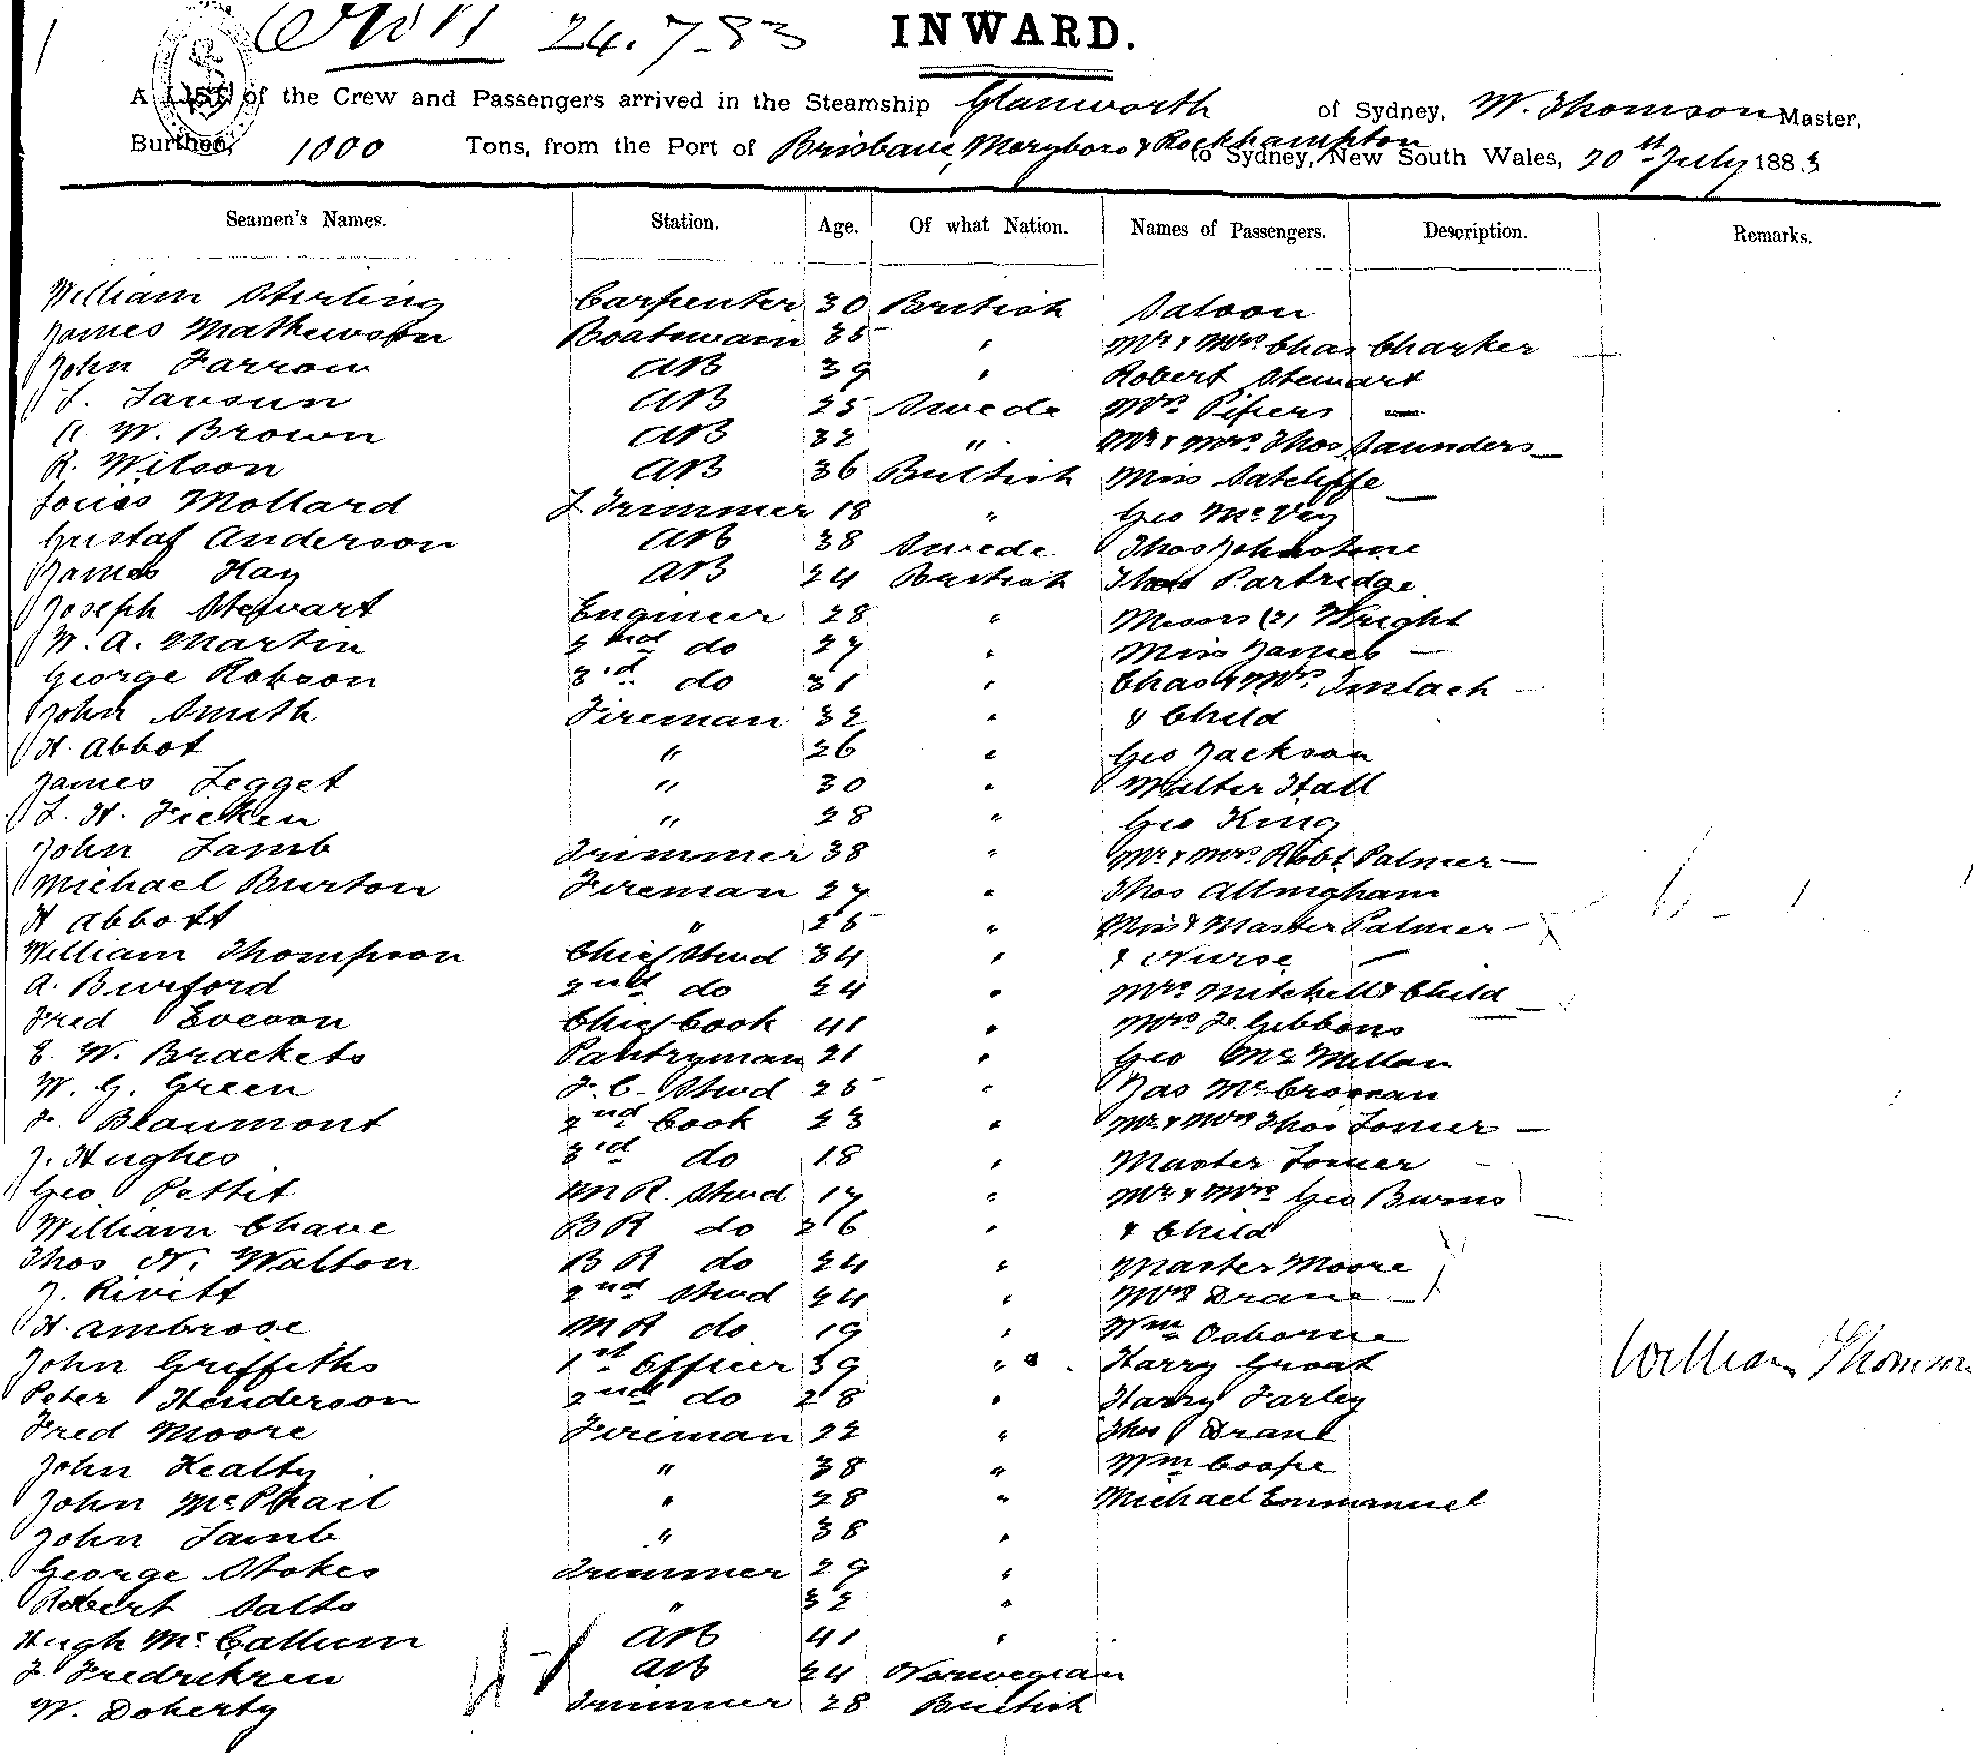 24.7.83 INWARD.
A LIST of the Crew and Passengers arrived in the Steamship Glanworth of Sydney, W. Thomson Master,
Burthen, 1000 Tons, from the Port of Brisbane, Maryboro & Rockhampton to Sydney, New South Wales, 20st July 1883
Seamen's Names. Station. Age. Of what Nation. Names of Passengers. Description. Remarks.
William Stirling Carpenter 30 British Saloon
James Mathewson Boatswain 35 " Mr & Mrs Chas Charker
John Farrow AB 39 " Robert Stewart
AB 25 Swede Mrs Pipers —
A. W. Brown AB 32 " Mr & Mrs Thos Saunders —
R. Wilson AB 36 British Miss Satcliffe —
Louis Mollard F Trimmer 18 " Geo McVey
Gustaf Anderson AB 38 Swede Thos Johnstone
James Hay AB 24 British Thos Partridge
Joseph Stewart Engineer 28 " Messrs (2) Wright
W. A. Martin 2nd do 27 " Miss James —
George Robson 3rd do 31 " Chas & Mrs Imlach —
John Smith Fireman 32 " & Child
H. Abbot " 26 " Geo Jackson
James Legget " 30 " Walter Hall
L. H. Ficken " 28 " Geo King
John Lamb Trimmer 38 " Mr & Mrs Robt Palmer —
Michael Burton Fireman 27 " Thos Allingham
H Abbott " 25 " Miss & Master Palmer —
William Thompson Chief Stwd 34 " & Nurse —
A. Burford 2nd do 24 " Mrs Mitchell & Child —
Fred Chief Cook 41 " Mrs Gibbons
E. W. Brackets Pantryman 21 " Geo McMillan
W. G. Green F.C. Stwd 25 " Jas McCrossan
F. Beaumont 2nd Cook 23 " Mr & Mrs Thos —
J. Hughes 3rd do 18 " Master
Geo Pettit M R. Stwd 17 " Mr & Mrs Geo Burns
William Chave B R do 26 " & Child
Thos N. Walton B R do 24 " Master Moore
J. Rivett 2nd Stwd 24 " Mrs Drane —
H. Ambrose M R do 19 " Wm Osborne
John Griffiths 1st Officer 39 " Harry Groat William Thomson
Peter Henderson 2nd do 28 " Harry Farley
Fred Moore Fireman 22 " Thos Drane
John Healty " 38 " Wm Coope
John McPhail " 28 " Michael Emmanuel
John Lamb " 38 "
George Stokes Trimmer 29 "
Robert Salts " 32 "
Hugh McCallum AB 41 "
F Fredriksen AB 24 Norwegian
W. Doherty Trimmer 28 British